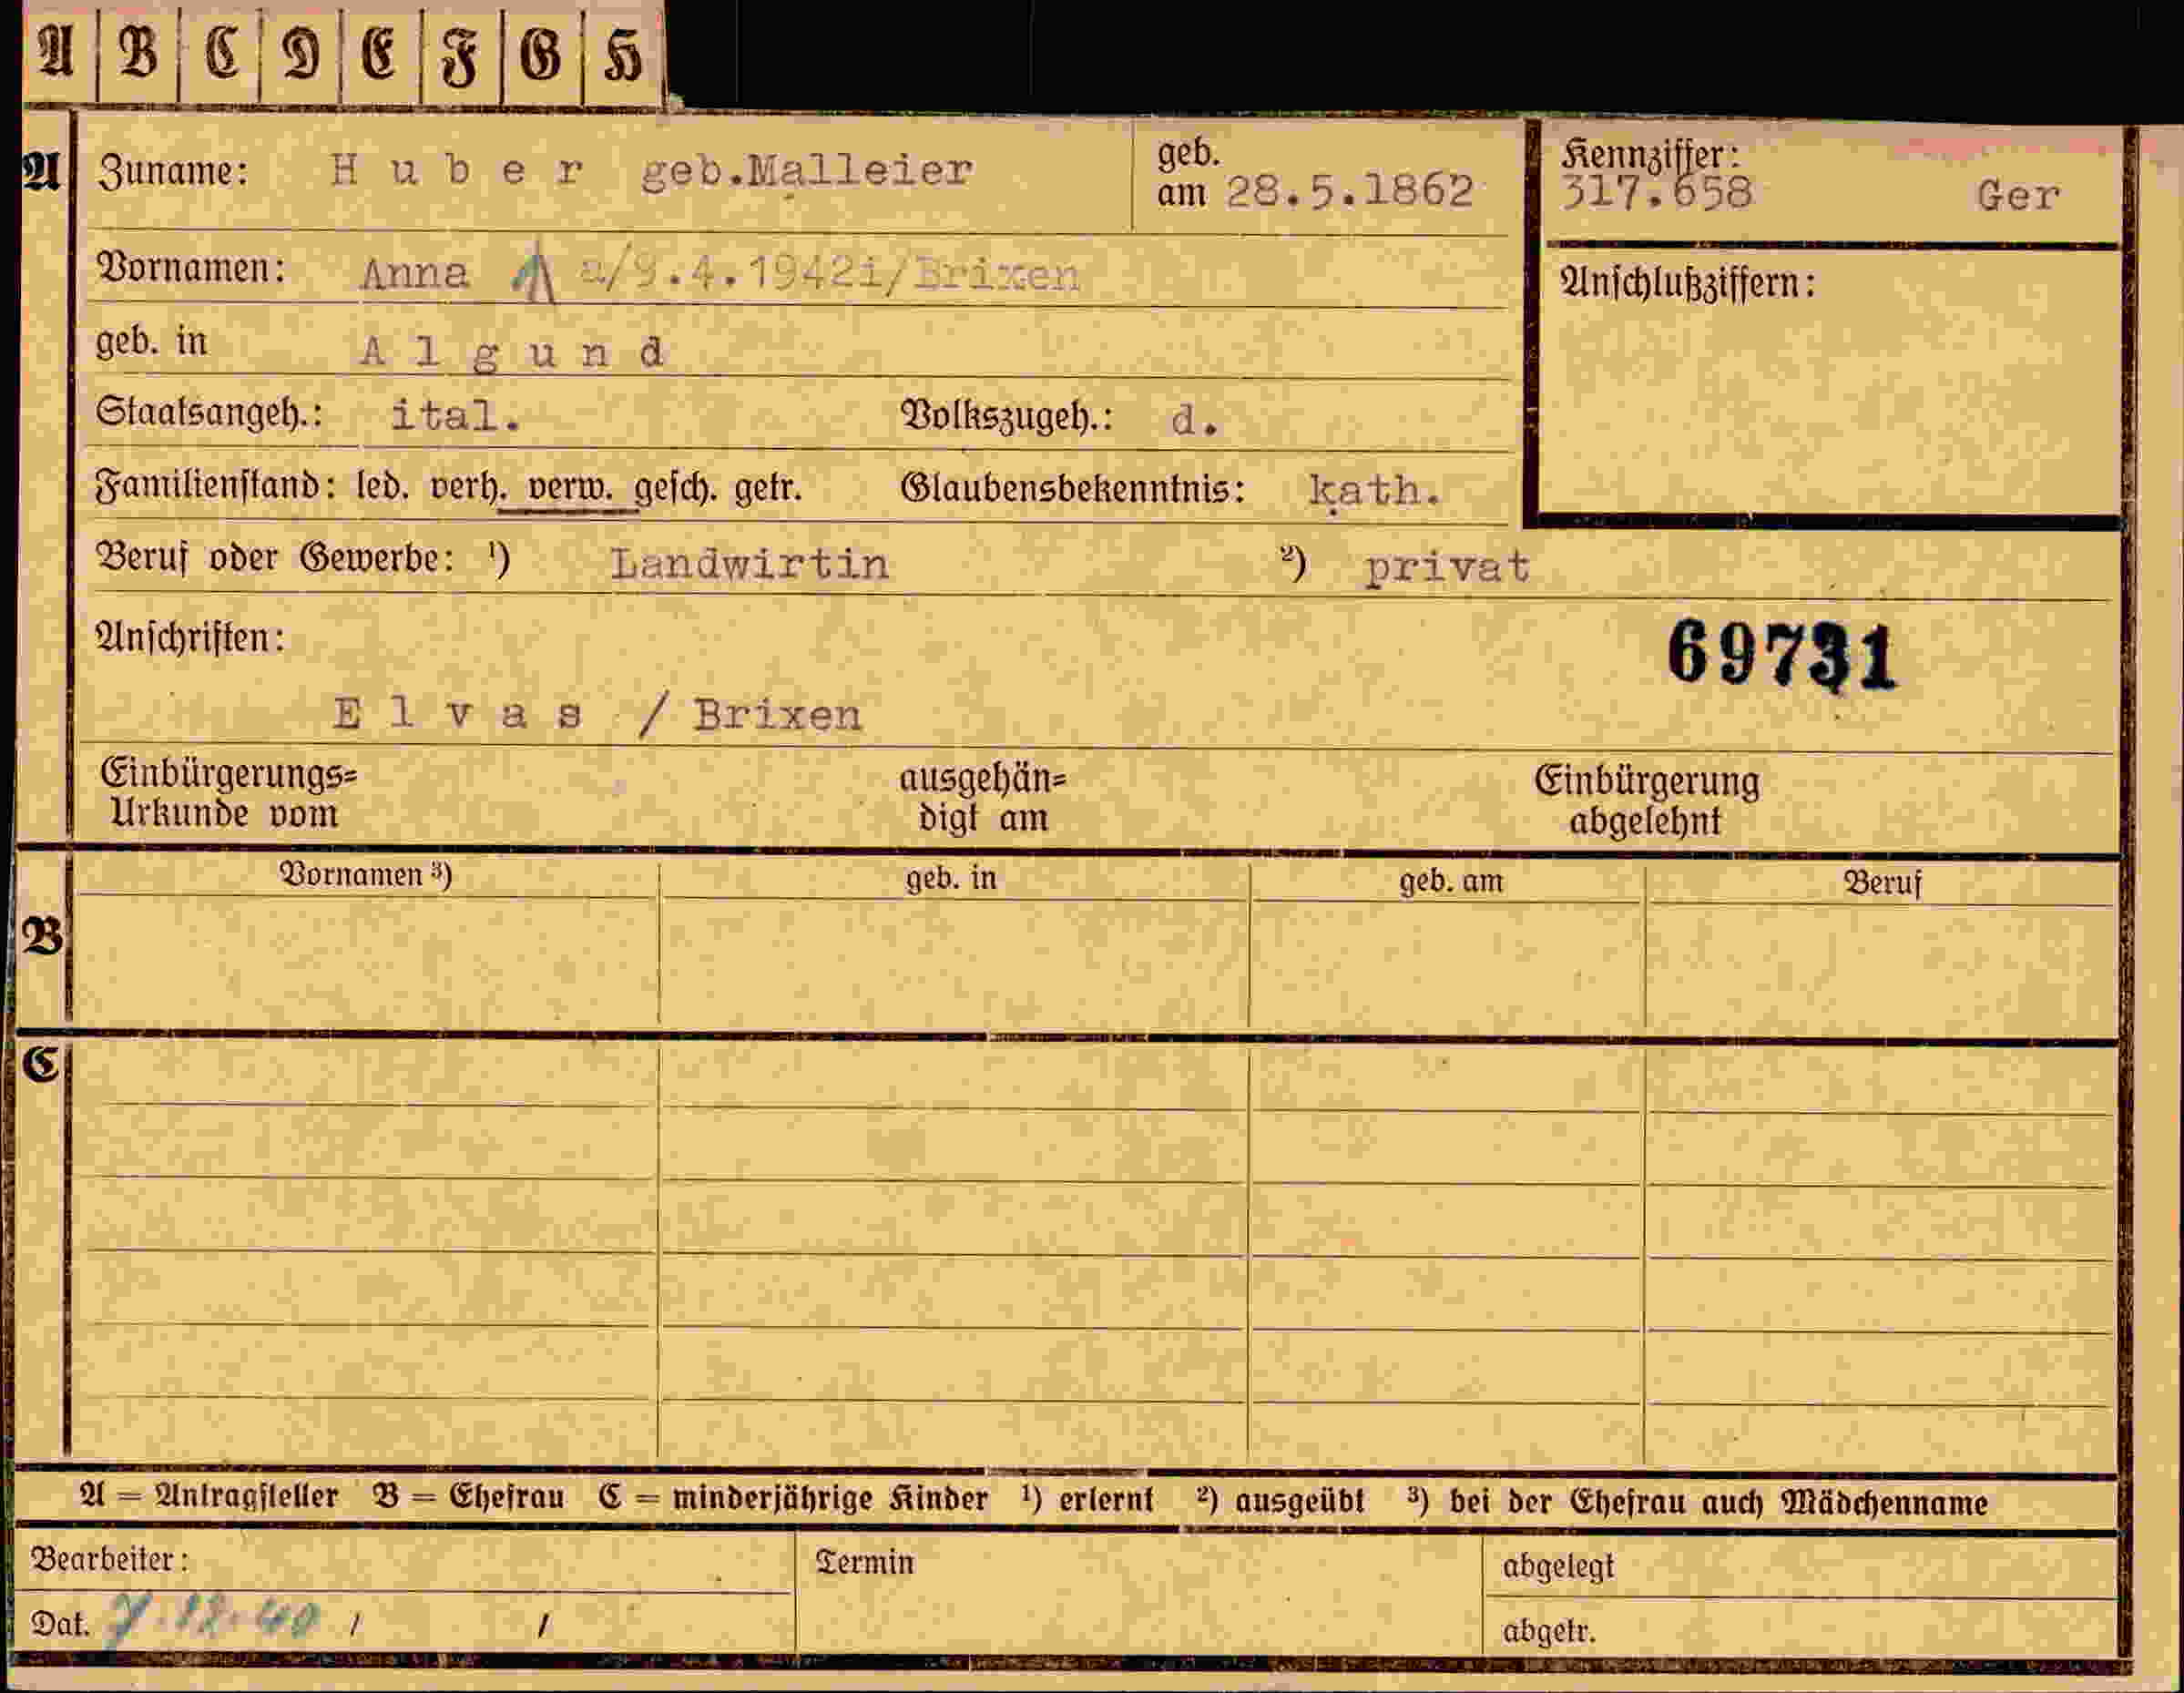 A B C D E F G H
A Zuname: Huber geb.Malleier geb. am 28.5.1862 Kennziffer: 317.658 Ger
Vornamen: Anna a/9.4.1942i/Brixen Anschlußziffern:
geb. in Algund
Staatsangeh.: ital. Volkszugeh.: d.
Familienstand: led. verh. verw. gesch. getr. Glaubensbekenntnis: kath.
Beruf oder Gewerbe: ¹) Landwirtin ²) privat
Anschriften: 69731
Elvas / Brixen
Einbürgerungs= ausgehän= Einbürgerung
Urkunde vom digt am abgelehnt
Vornamen ³) geb. in geb. am Beruf
B
C
A = Antragsteller B = Ehefrau C = minderjährige Kinder ¹) erlernt ²) ausgeübt ³) bei der Ehefrau auch Mädchenname
Bearbeiter: Termin abgelegt
Dat. 7.12.40 / / abgetr.